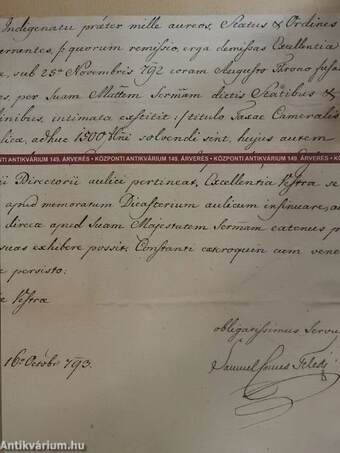 Indigenatu præter mille aureos, Status & Ordines
errantes, p quorum remissio, erga demissas Excellentia
, sub 28a Novembris 792 coram Augusto Throno
es, per Suam Mattem Sermam dictis Statibus &
inibus, intimata exstitit: titulo Taxae Cameralis
lica, adhuc 1500 solvendi sint, hujus autem
NTI ANTIKVÁRIUM 149. ÁRVERÉS • KÖZPONTI ANTIKVÁRIUM 149. ÁRVERÉS • KÖZPONTI ANTIKVÁRIUM 149. ÁRVERÉS • KÖZPO
ii Directorii aulici pertineat, Excellentia Vestra se
apud memoratum Dicasterium aulicum insinuare, au
direcs apud Suam Majestatem Sermam eatenus p
suas exhibere possit. Constanti cæteroquin cum vene
e persisto:
a Vestra
obligatissimus Servu
16a Octobr 793.
Samuel Comes Teleki
Antikvárium.hu
antikvarium.hu